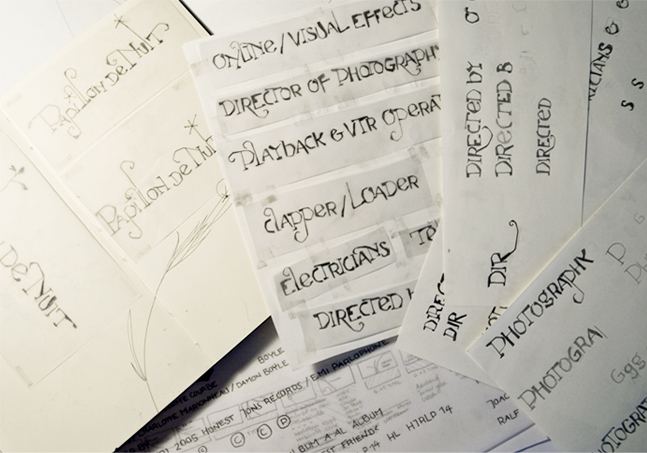 Papillon de Nuit
Papillon de Nuit
de Nuit
ONLINE/VISUAL EFFECTS
DIRECTOR OF PHOTOGRAPH
PLAYBACK & VTR OPERAT
CLAPPER/LOADER
ELECTRICIANS
DIRECTED
DIRECTED BY
DIRECTED B
DIRECTED
DIR
DIREC
DIR
PHOTOGRAPHY
PHOTOGRA
P
Ggg
S S
BOYLE
MARIONNEAU/DAMON BOYLE
2005 HONEST JONS RECORDS/EMI PARLOPHONE
ALBUM
FRIENDS
RALF